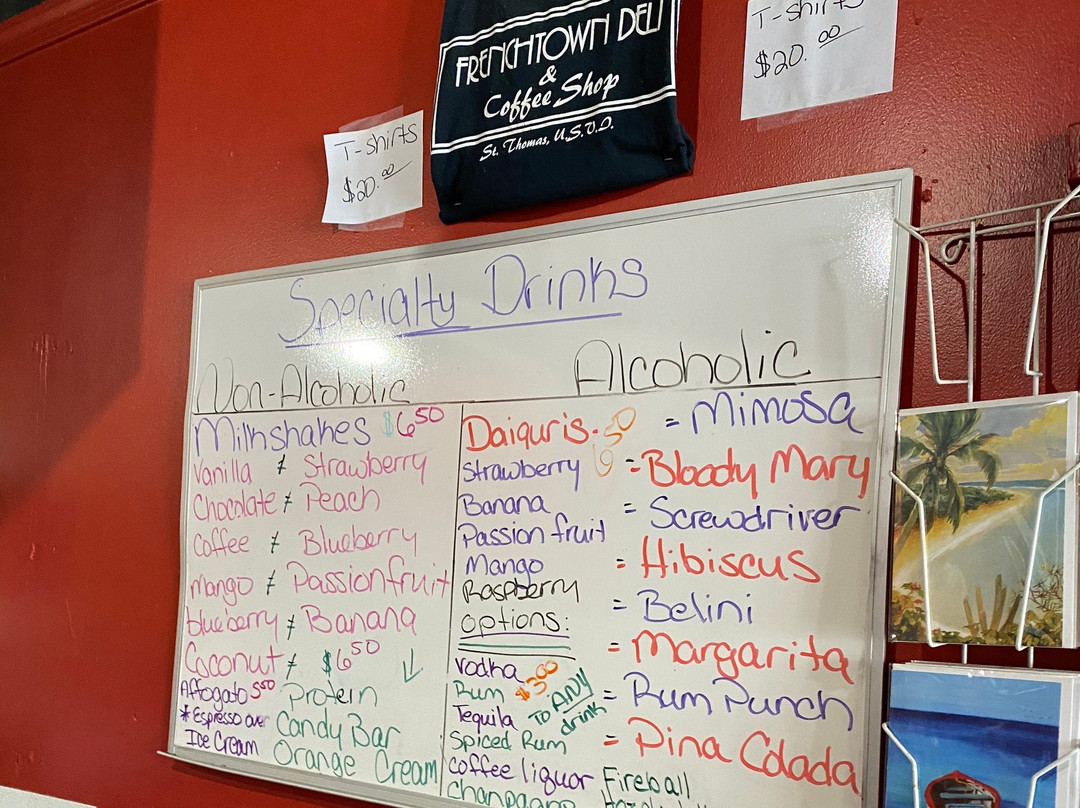 FRENCHTOWN DELI
&
Coffee Shop
St. Thomas, U.S.V.I.
T-shirts
$20.00
T-shirts
$20.00
Specialty Drinks
Non-Alcoholic
Milkshakes $6.50
Vanilla & Strawberry
Chocolate & Peach
Coffee & Blueberry
Mango & Passionfruit
blueberry & Banana
Coconut & $6.50
Affogato 5.50
*Espresso over
Ice Cream
Protein
Candy Bar
Orange Cream
Alcoholic
Daiquris
Strawberry
Banana
Passion fruit
Mango
Raspberry
options:
Vodka
Rum $3.00
Tequila
TO ANY
drink
Spiced Rum
Coffee liquor
Fireball
= Mimosa
= Bloody Mary
= Screwdriver
= Hibiscus
= Belini
= Margarita
= Rum Punch
= Pina Colada